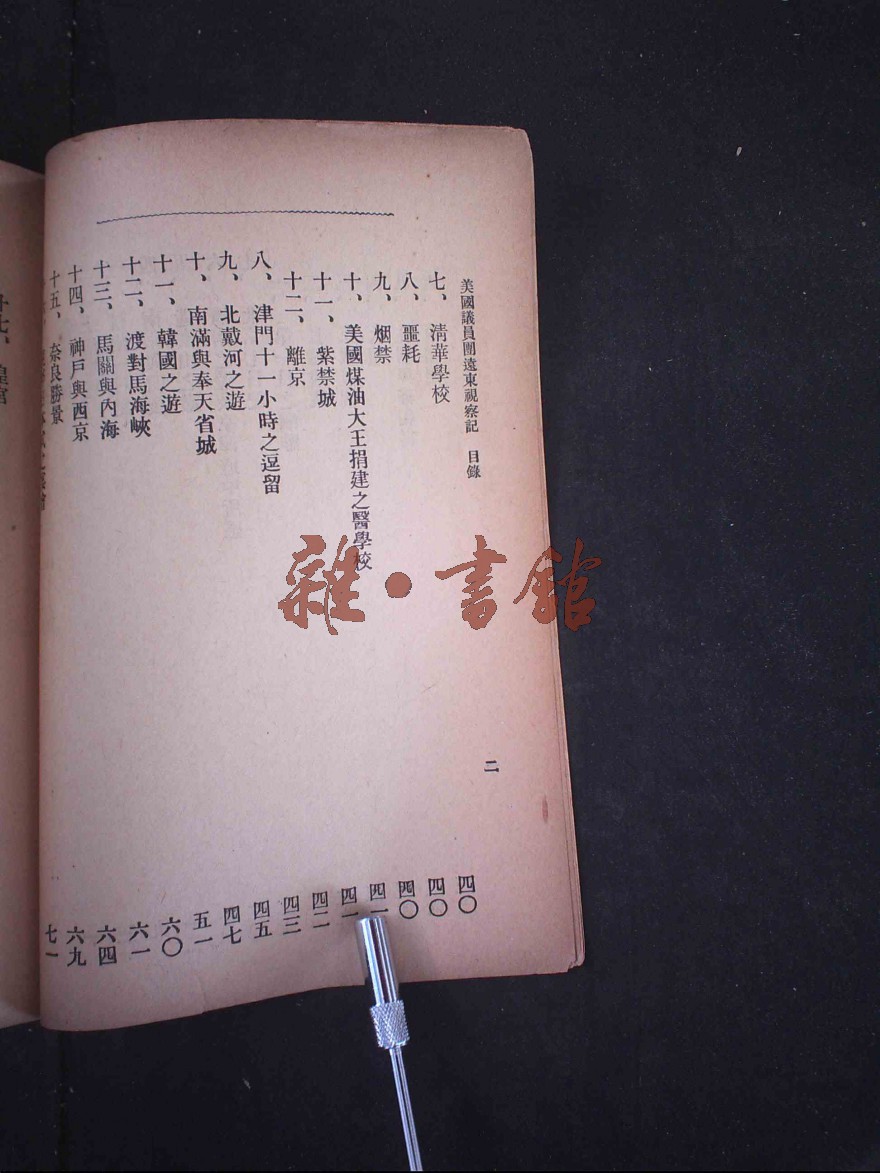 美國議員團遠東視察記 目錄 二
七、清華學校 四〇
八、噩耗 四〇
九、烟禁 四〇
十、美國煤油大王捐建之醫學校 四一
十一、紫禁城 四一
十二、離京 四二
八、津門十一小時之逗留 四三
九、北戴河之遊 四五
十、南滿與奉天省城 四七
十一、韓國之遊 五一
十二、渡對馬海峽 六〇
十三、馬關與內海 六一
十四、神戶與西京 六四
十五、奈良勝景 六九
七一
十七、皇宮
雜·書館